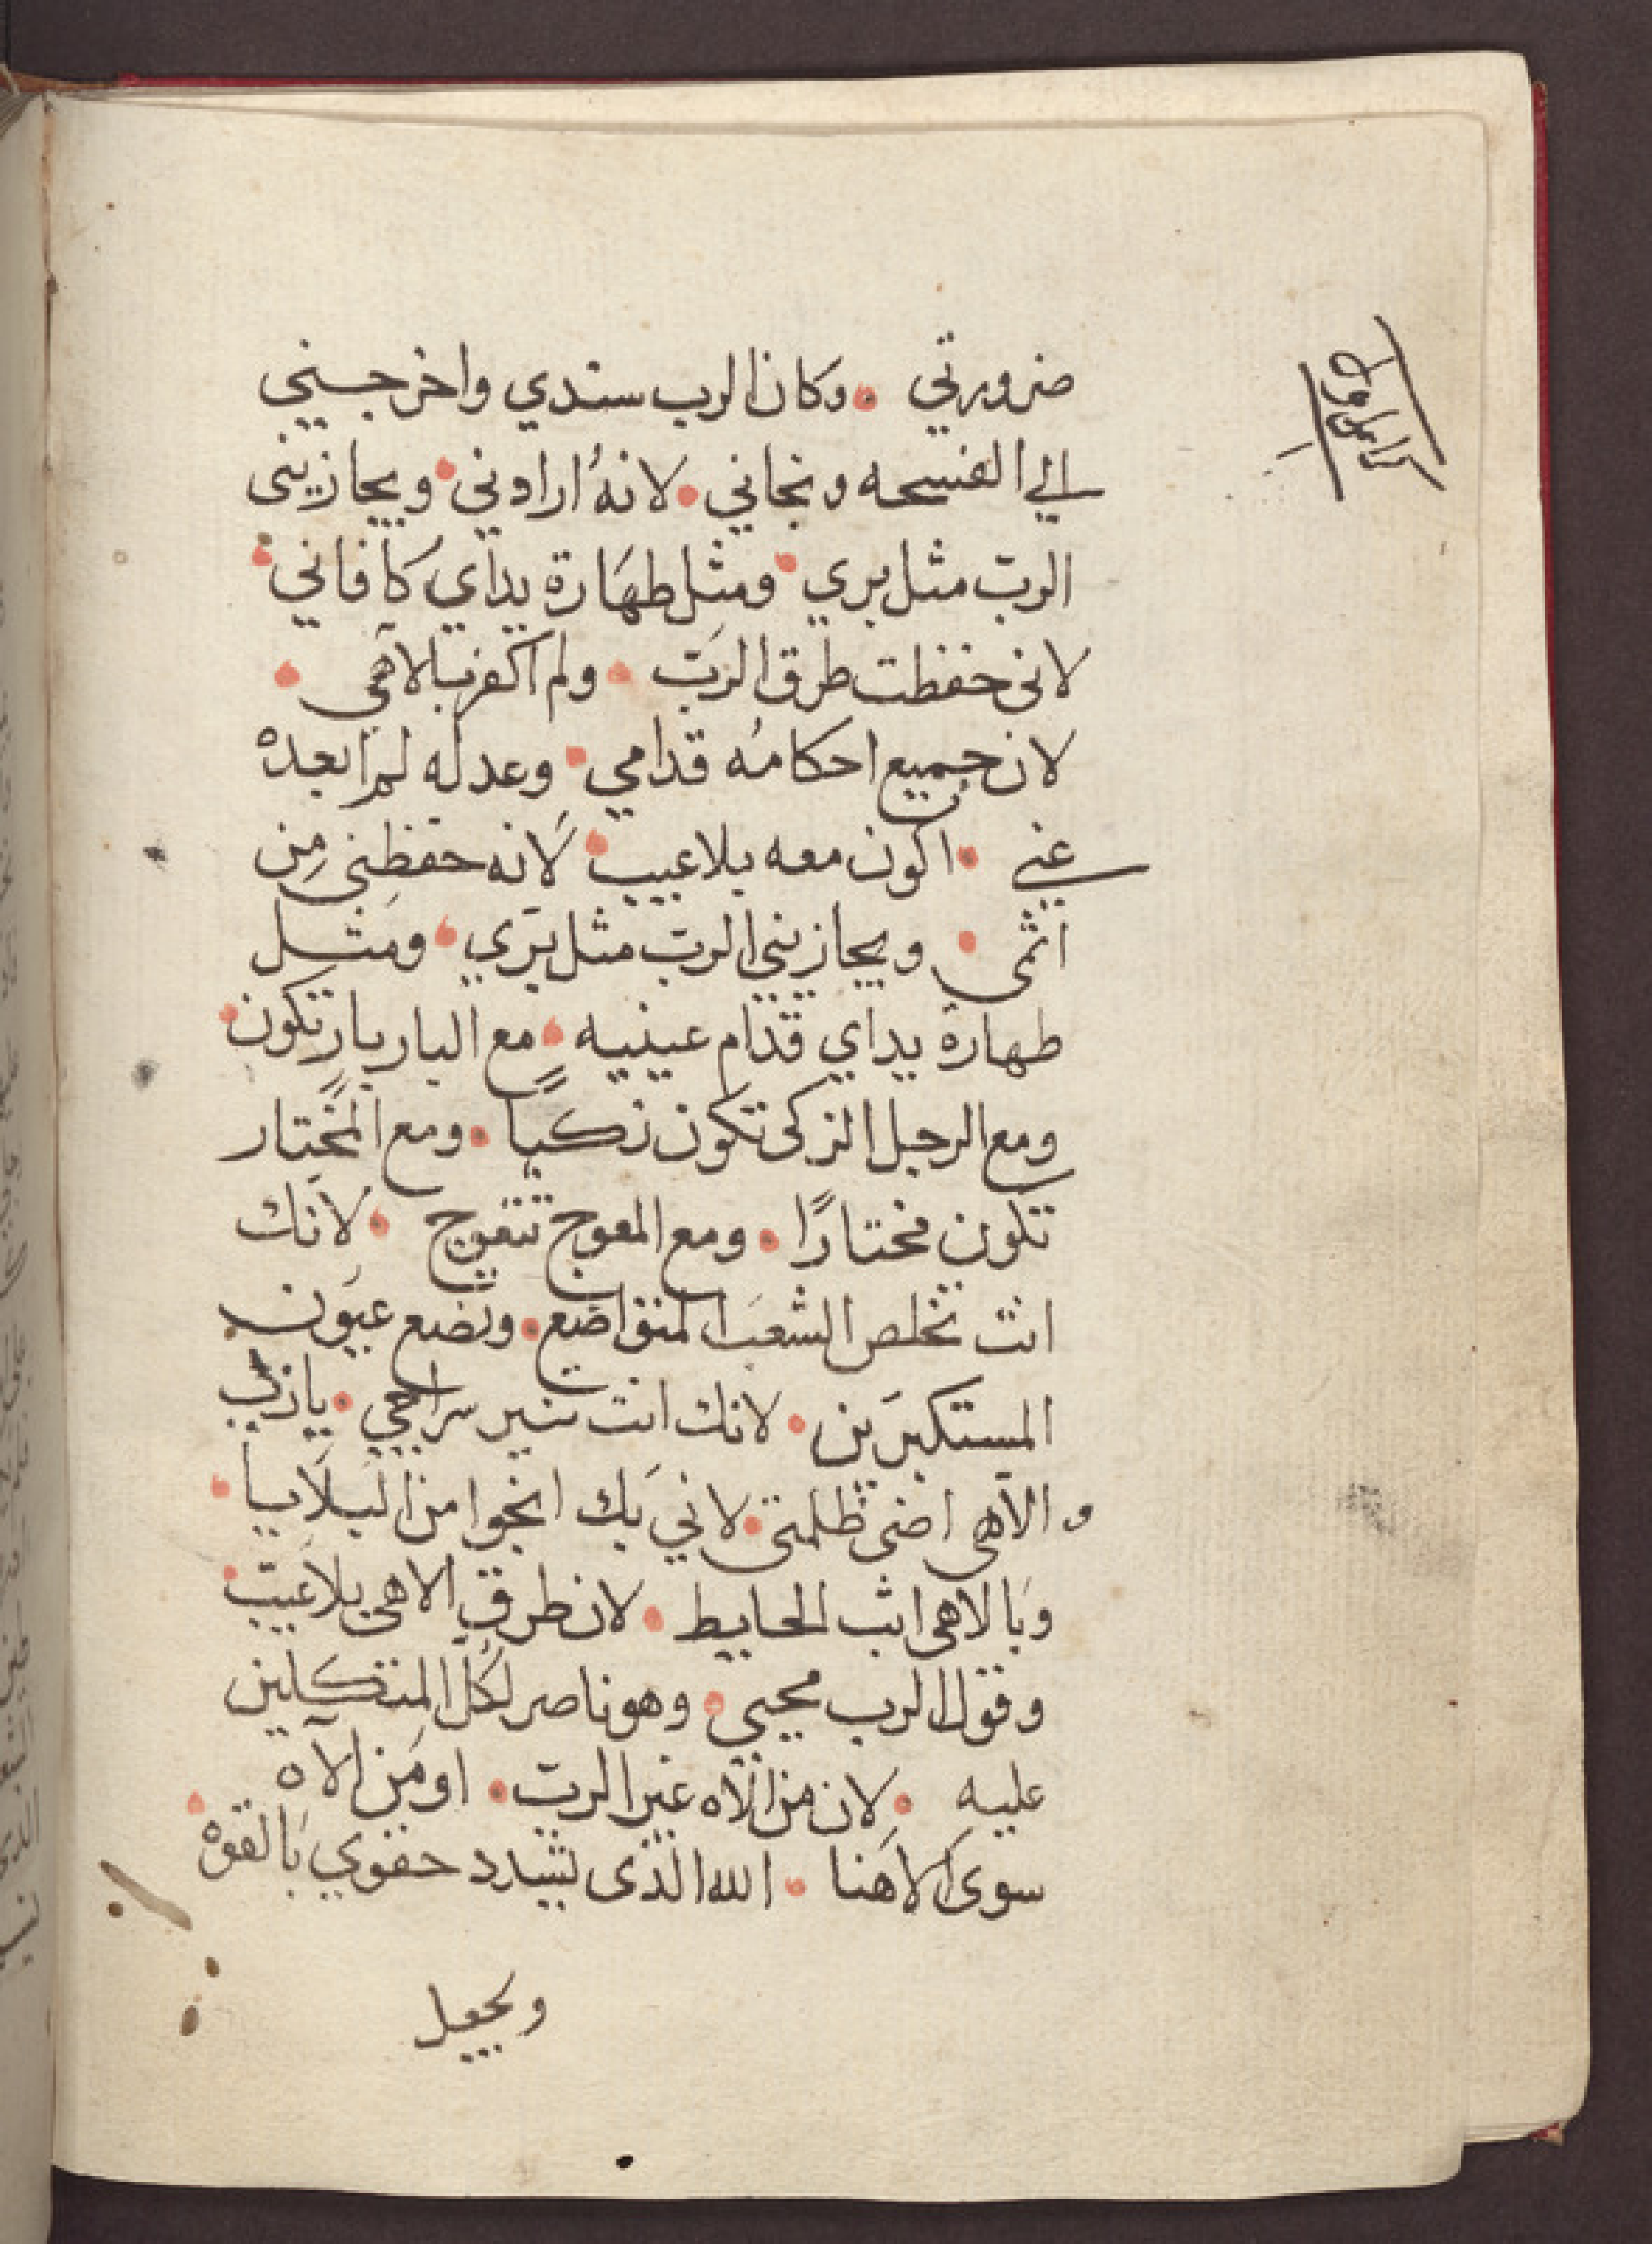 ضرورتي • وكان الرب سندي واخرجني
الي الفسحه ونجاني • لانهُ ارادني • ويجازيني
الرب مثل بري • ومثل طهَارة يداي كافاني •
لاني حفظت طرق الرَب • ولم اكفر بالاهي •
لان جميع احكامهُ قدامي • وعدله لم ابعده
عني • اكون معه بلا عيب • لَانه حفظِني مِن
اثمي • ويجازيني الرب مثل برَي • ومثل
طهارة يداي قدام عينيه • مع البار بارًا تكون •
ومع الرجل الزكي تكون زكيًا • ومع المختار
تكون مختارًا • ومع المعوج تتعوج • لانك
انت تخلص الشعبَ المتواضع • وتضع عيَون
المستكبرَين • لانك انت تنير سراجي • يا رب
و الاهي اضي ظلمتي • لاني بَك انجوا من البلَايا •
وَبالاهي اثب الحايط • لان طرق الاهي بلا عيب •
وقول الرب محيي • وهو ناصر لكُل المتكلين
عليه • لان من الاه غير الرب • او مَن الآه
سوىَ الاهَنا • الله الذي يشدد حقوي بَالقوه •
ويجعل